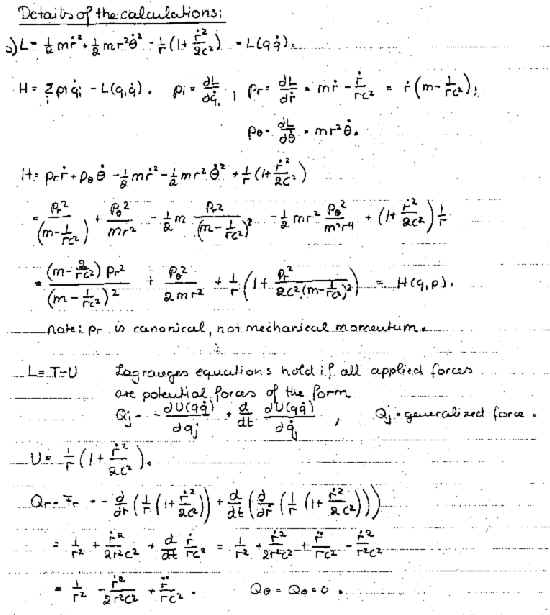 Details of the calculations:
a) L = ½ mṙ² + ½ mr²θ̇² - 1/r (1 + ṙ²/2c²) = L(q, q̇).
H = Σ pᵢ q̇ᵢ - L(q, q̇). pᵢ = dL/dq̇ᵢ , pr = dL/dṙ = mṙ - ṙ/rc² = ṙ(m - 1/rc²),
pθ = dL/dθ̇ = mr²θ̇.
H = pr ṙ + pθ θ̇ - ½ mṙ² - ½ mr²θ̇² + 1/r (1 + ṙ²/2c²)
= pr²/(m - 1/rc²) + pθ²/mr² - ½ m pr²/(m - 1/rc²)² - ½ mr² pθ²/m²r⁴ + (1 + ṙ²/2c²) 1/r
= (m - 2/rc²) pr²/(m - 1/rc²)² + pθ²/2mr² + 1/r (1 + pr²/2c²(m - 1/rc²)²) = H(q, p).
note: pr is canonical, not mechanical momentum.
L = T - U Lagranges equations hold if all applied forces
are potential forces of the form
Qj = - dU(q q̇)/dqj + d/dt dU(q q̇)/dq̇j , Qj = generalized force.
U = 1/r (1 + ṙ²/2c²).
Qr = Fr = - d/dr (1/r (1 + ṙ²/2c²)) + d/dt (d/dṙ (1/r (1 + ṙ²/2c²)))
= 1/r² + ṙ²/2r²c² + d/dt ṙ/rc² = 1/r² + ṙ²/2r²c² + r̈/rc² - ṙ²/r²c²
= 1/r² - ṙ²/2r²c² + r̈/rc². Qθ = Qθ = 0.